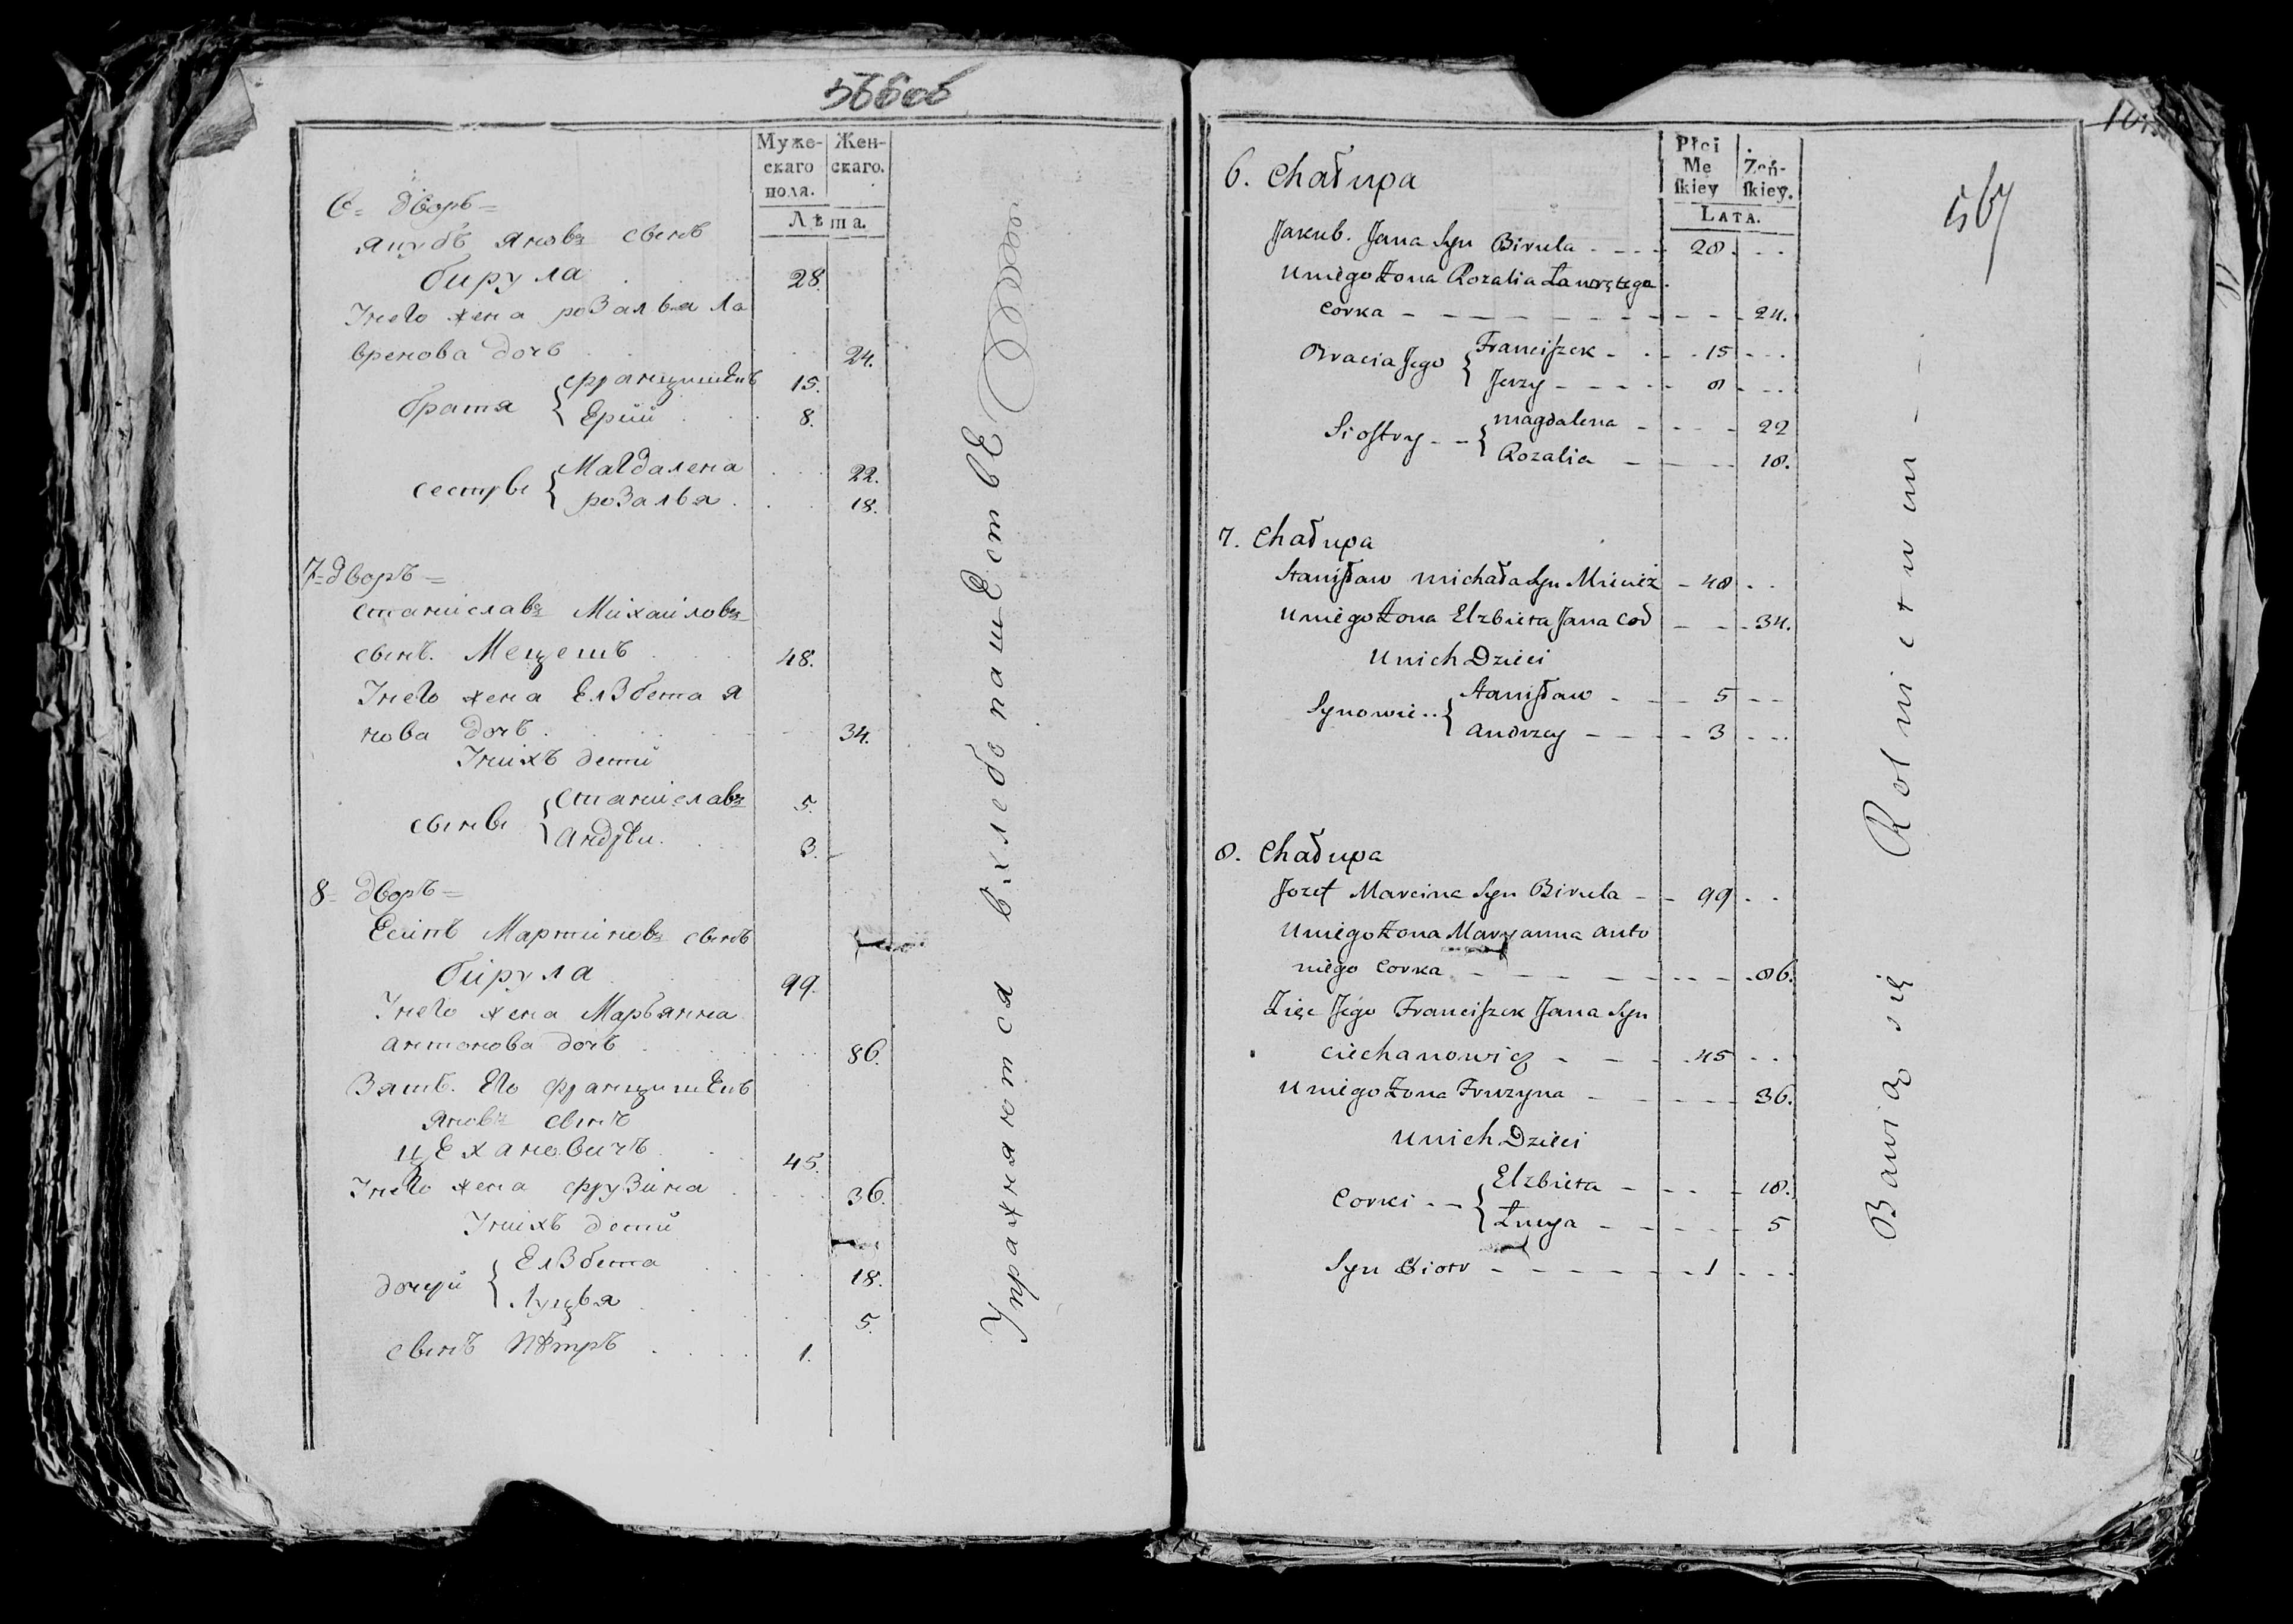 566об
Муже-
скаго
пола.
Жен-
скаго.
Лѣта.
6= дворъ=
якубъ яновъ сынъ
бирула 28.
Унего жена розалья ла
вренова дочь 24.
братя { францишекъ 15.
Ерїй 8.
сестры { Магдалена 22.
розалья 18.
7=дворъ=
станиславъ Михайловъ
сынъ. Мецешъ 48.
Унего жена Елзбета я
нова дочь 34.
Унихъ дети
сыны { станиславъ 5.
андрѣи. 3.
8= дворъ=
Есипъ Мартиновъ сынъ
бирула 99.
Унего жена Марьянна
антонова дочь 86.
Зять. Его францишекъ
яновъ сынъ
цехановичъ 45.
Унего жена фрузина 36.
Унихъ дети
дочери { Елзбета 18.
Луцья 5.
сынъ Пётръ 1.
Упражняются в хлебопашестве
567
Płci
Mę
skiey
Żeń-
skiey.
LATA.
6. Chałupa
Jakub. Jana Syn Birula 28
Uniego Żona Rozalia Ławrętego
Corka 24.
Bracia Jego { Franciszek 15
Jerzy 8
Siostry { Magdalena 22
Rozalia 18.
7. Chałupa
Stanisław Michała Syn Miciež 48
Uniego Żona Elzbieta Jana Cod 34.
Unich Dzieci
Synowie { Stanisław 5
Andrzey 3
8. Chałupa
Jozef Marcina Syn Birula 99
Uniego Żona Maryanna Anto
niego Corka 86.
Zięć Jego Franciszek Jana Syn
Ciechanowicz 45
Uniego Żona Fruzyna 36.
Unich Dzieci
Corki { Elzbieta 18.
Łucya 5
Syn Piotr 1
Bawią się Rolnictwem